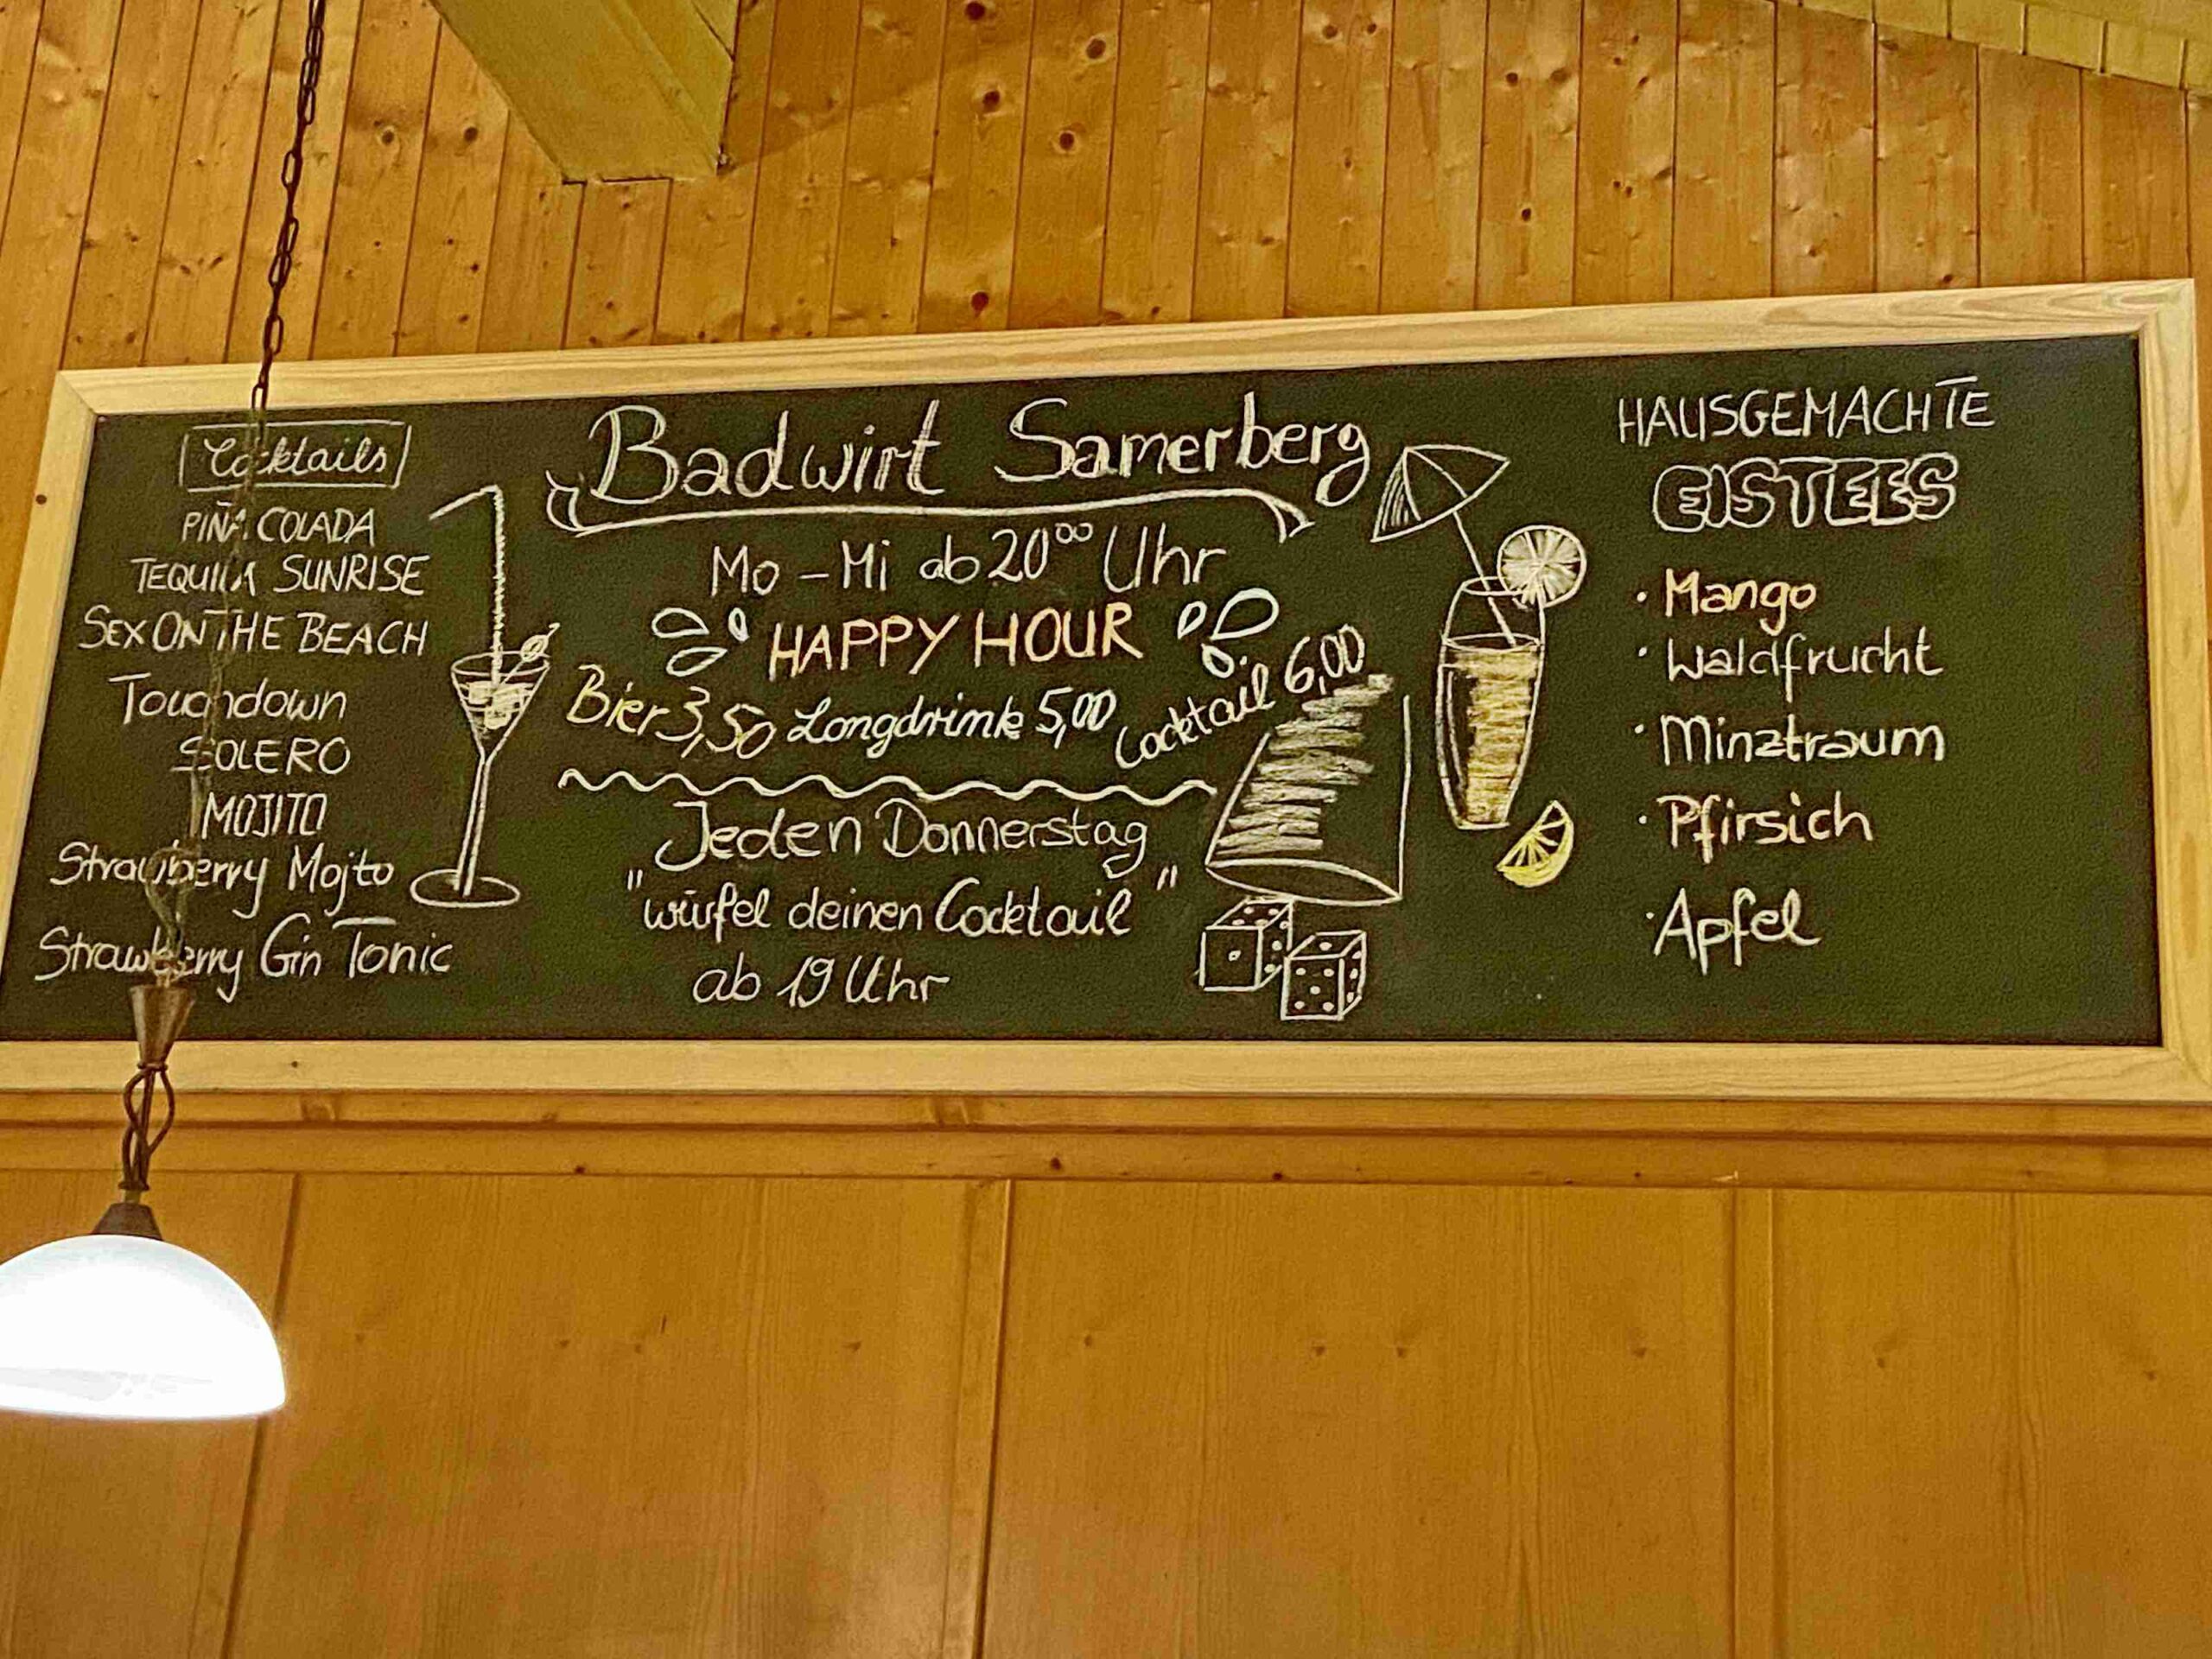 Cocktails
PIÑA COLADA
TEQUILA SUNRISE
SEX ON THE BEACH
Touchdown
SOLERO
MOJITO
Strawberry Mojto
Strawberry Gin Tonic
Badwirt Samerberg
Mo - Mi ab 20⁰⁰ Uhr
HAPPY HOUR
Bier 3,50 Longdrink 5,00 Cocktail 6,00
Jeden Donnerstag
"würfel deinen Cocktail"
ab 19 Uhr
HAUSGEMACHTE
EISTEES
· Mango
· Waldfrucht
· Minztraum
· Pfirsich
· Apfel